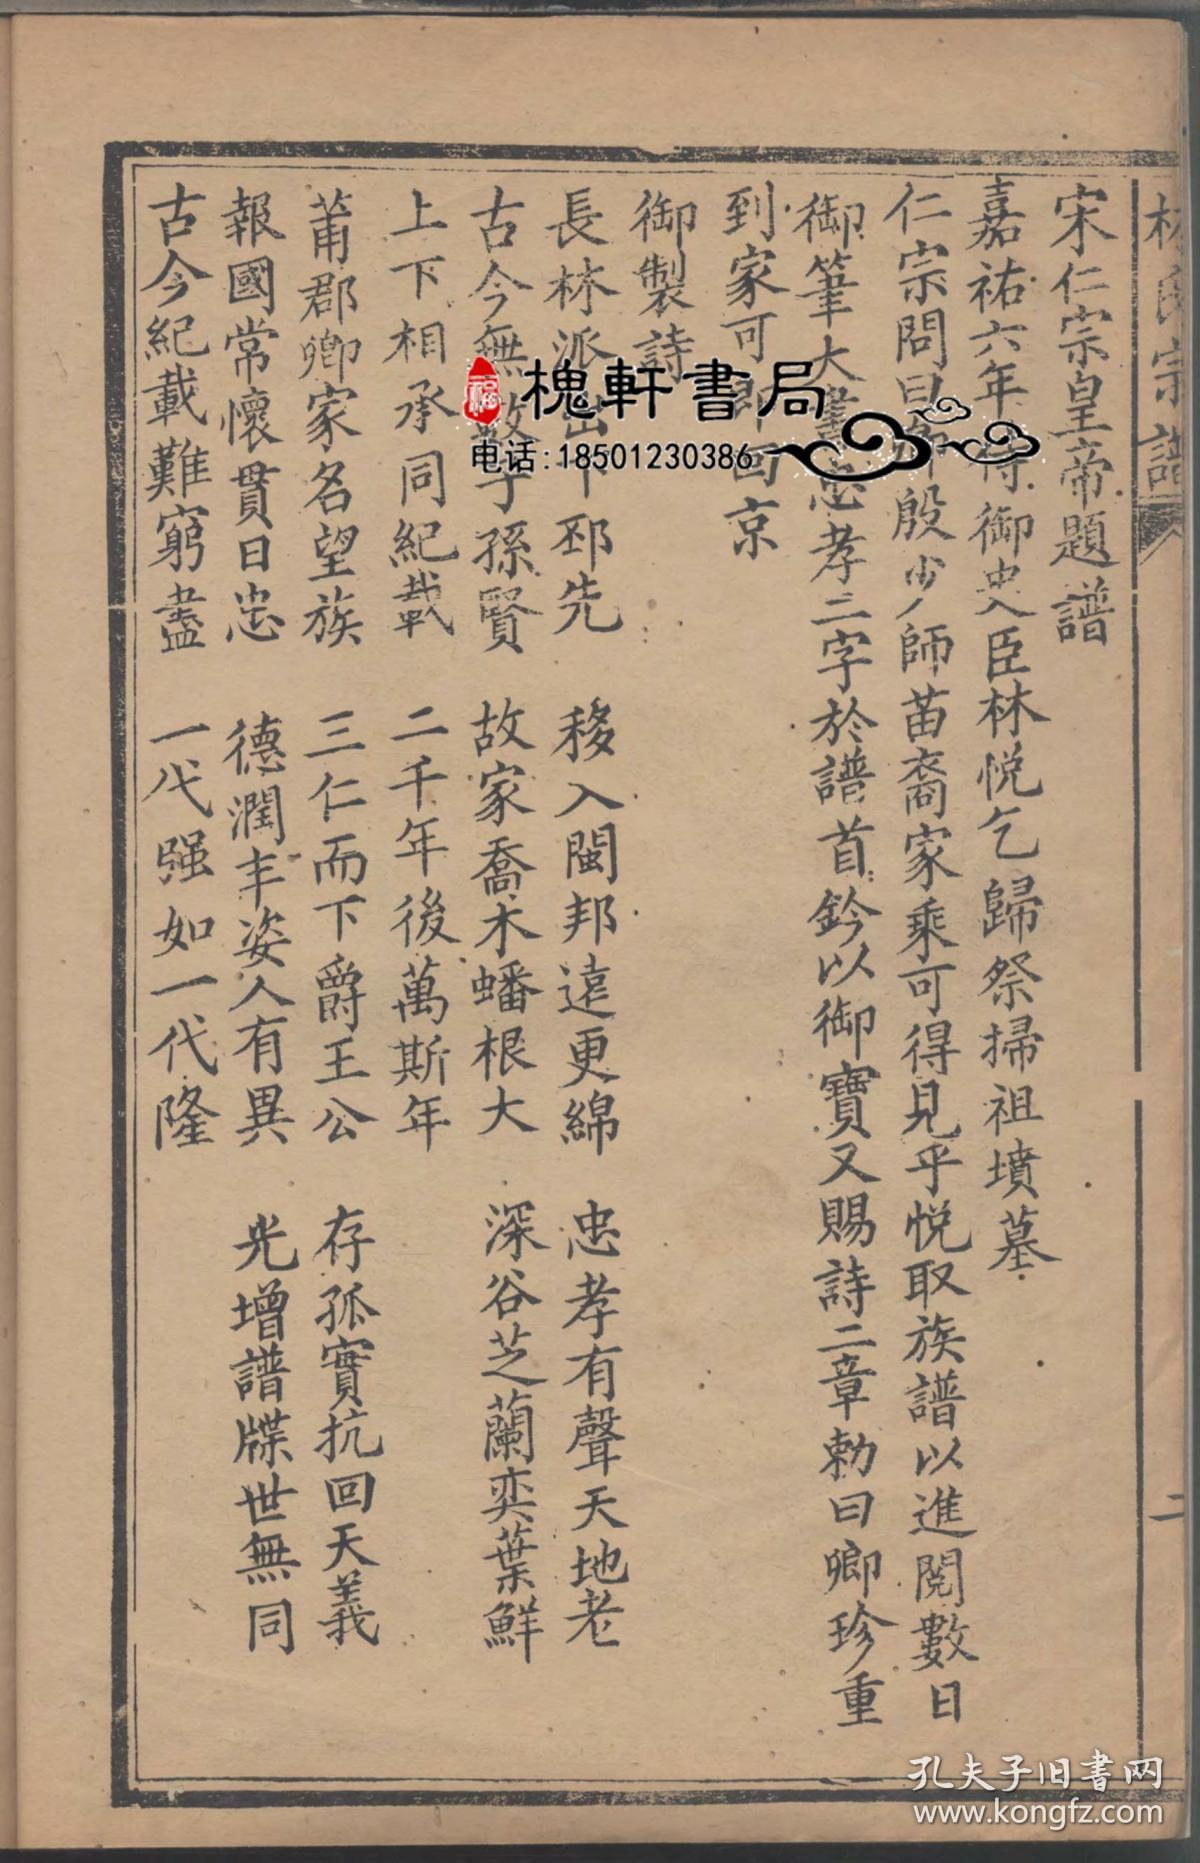 林氏宗譜
二
宋仁宗皇帝題譜
嘉祐六年侍御史臣林悅乞歸祭掃祖墳墓
仁宗問曰卿殷少師苗裔家乘可得見乎悅取族譜以進閱數日
御筆大書忠孝二字於譜首鈐以御寶又賜詩二章勅曰卿珍重
到家可即回京
御製詩
長林派出下邳先 移入閩邦遠更綿 忠孝有聲天地老
古今無數子孫賢 故家喬木蟠根大 深谷芝蘭奕葉鮮
上下相承同紀載 二千年後萬斯年
莆郡卿家名望族 三仁而下爵王公 存孤實抗回天義
報國常懷貫日忠 德潤丰姿人有異 光增譜牒世無同
古今紀載難窮盡 一代强如一代隆
福
槐軒書局
电话:18501230386
孔夫子旧书网
www.kongfz.com